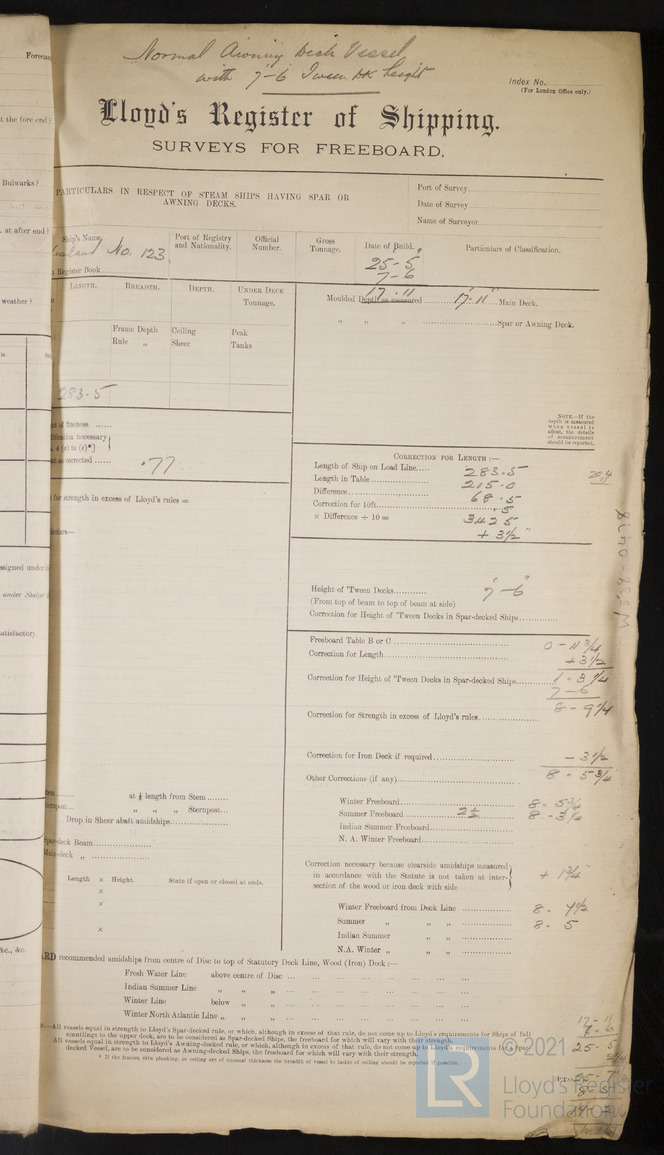 Normal Awning Deck Vessel
with 7'-6 Tween Dk height
Index No.
(For London Office only.)
Lloyd's Register of Shipping.
SURVEYS FOR FREEBOARD,
PARTICULARS IN RESPECT OF STEAM SHIPS HAVING SPAR OR
AWNING DECKS.
Port of Survey
Date of Survey
Name of Surveyor
Ship's Name, Port of Registry and Nationality. Official Number. Gross Tonnage. Date of Build. Particulars of Classification.
No. 123.
25-5
7-6
17-11
Register Book
LENGTH. BREADTH. DEPTH. UNDER DECK Tonnage.
Moulded Depth as measured 17'-11" Main Deck.
" " " Spar or Awning Deck.
Frame Depth Ceiling Peak
Rule " Sheer Tanks
283.5
NOTE.—If the
depth is measured
when vessel is
afloat, the details
of measurement
should be reported.
of fineness
necessary
corrected
.77
for strength in excess of Lloyd's rules =
CORRECTION FOR LENGTH:—
Length of Ship on Load Line 283.5
Length in Table 215.0
Difference 68.5
Correction for 10ft. .5
× Difference ÷ 10 = 3425
+ 3½"
Height of 'Tween Decks 7'-6"
(From top of beam to top of beam at side)
Correction for Height of 'Tween Decks in Spar-decked Ships
Freeboard Table B or C 0-11¾
Correction for Length +3½
Correction for Height of 'Tween Decks in Spar-decked Ships 1-3¼
7-6
8-9¼
Correction for Strength in excess of Lloyd's rules
Correction for Iron Deck if required -3½
Other Corrections (if any) 8-5¾
Winter Freeboard 8-5¾
Summer Freeboard 2½ 8-3¼
Indian Summer Freeboard
N. A. Winter Freeboard
Correction necessary because clearside amidships measured
in accordance with the Statute is not taken at inter-
section of the wood or iron deck with side
+ 1¾
Winter Freeboard from Deck Line 8. 7½
Summer " " " 8. 5
Indian Summer " "
N.A. Winter " " "
at ⅛ length from Stem
" " " Sternpost
Drop in Sheer abaft amidships
Spar-deck Beam
Main-deck "
Length × Height. State if open or closed at ends.
×
×
×
recommended amidships from centre of Disc to top of Statutory Deck Line, Wood (Iron) Deck :—
Fresh Water Line above centre of Disc
Indian Summer Line " " "
Winter Line below " "
Winter North Atlantic Line " " "
All vessels equal in strength to Lloyd's Spar-decked rule, or which, although in excess of that rule, do not come up to Lloyd's requirements for Ships of full
scantlings to the upper deck, are to be considered as Spar-decked Ships, the freeboard for which will vary with their strength.
All vessels equal in strength to Lloyd's Awning-decked rule, or which, although in excess of that rule, do not come up to Lloyd's requirements for a Spar-
decked Vessel, are to be considered as Awning-decked Ships, the freeboard for which will vary with their strength.
* If the frames, skin planking, or ceiling are of unusual thickness the breadth of vessel to inside of ceiling should be reported if possible.
17-11
7-6
25-5
W332-0418
Forecas
the fore end?
Bulwarks?
at after end?
weather?
ssigned under
under
satisfactory.
&c., &c.
LR
© 2021
Lloyd's Register
Foundation